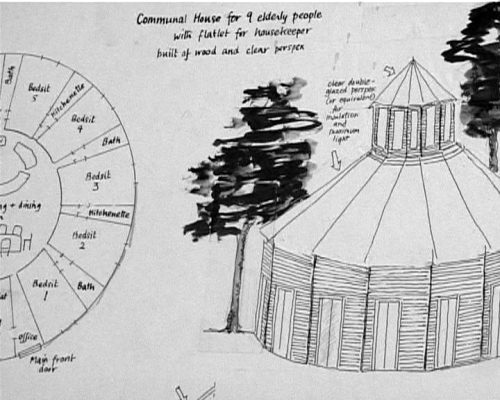 Communal House for 9 elderly people
with flatlet for housekeeper
built of wood and clear perspex
clear double-
glazed perspex
(or equivalent)
for
insulation
and
maximum
light
Bath
Bedsit
5
Kitchenette
Bedsit
4
Bath
Bedsit
3
+ dining
Kitchenette
Bedsit
2
Bath
Bedsit
1
Office
Main front
door